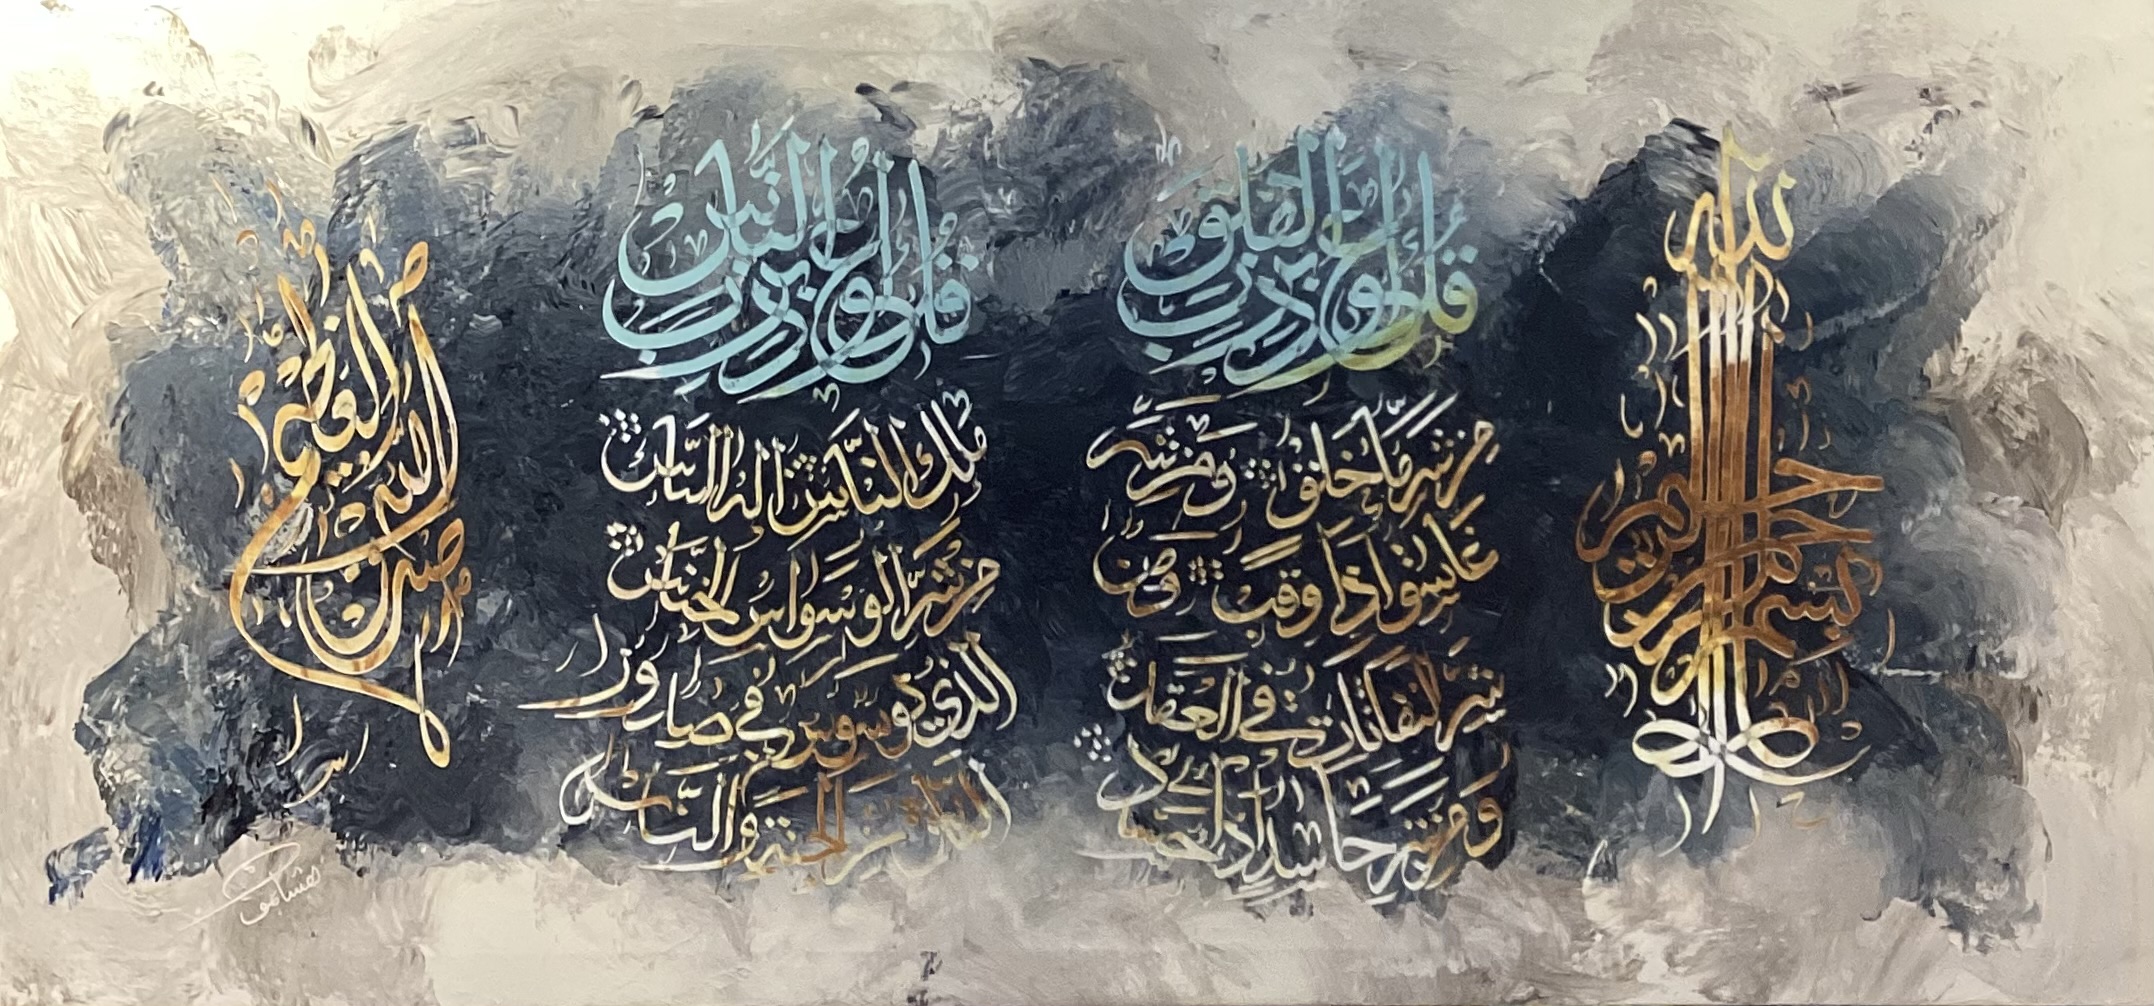 بسم الله الرحمن الرحيم
قل أعوذ برب الفلق
من شر ما خلق ومن شر
غاسق إذا وقب ومن
شر النفاثات في العقد
ومن شر حاسد إذا حسد
قل أعوذ برب الناس
ملك الناس إله الناس
من شر الوسواس الخناس
الذي يوسوس في صدور
الناس من الجنة والناس
صدق الله العظيم